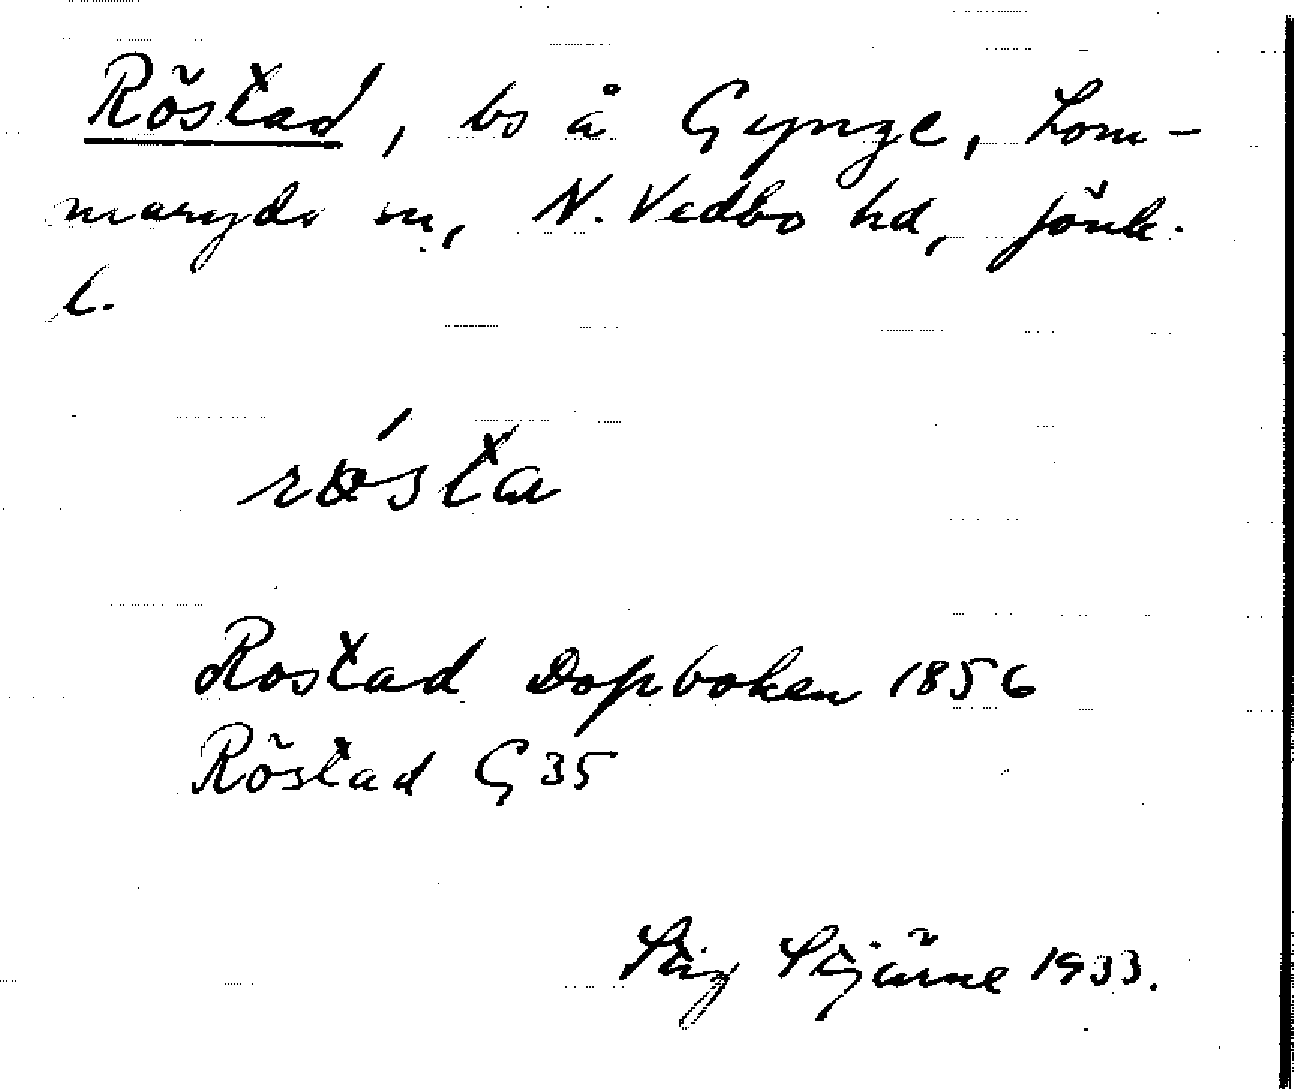 Röstad, bs å Gynge, Lom-
maryds sn, N. Vedbo hd, Jönk.
l.
rǿsta
Rostad Dopboken 1856
Röstad G 35
Stig Stjärne 1933.